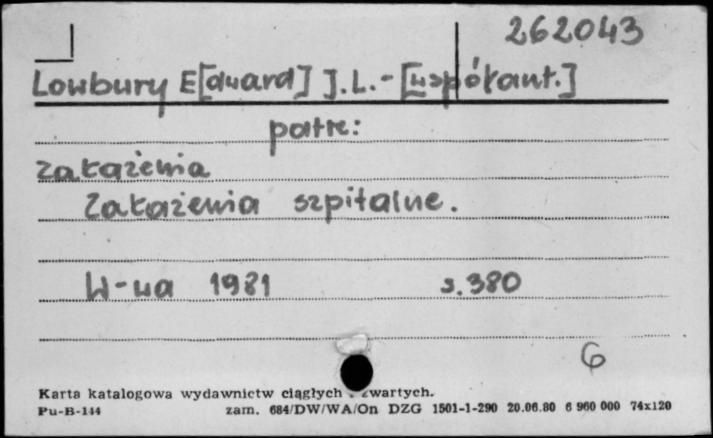 262043
Lowbury E[dward] J.L. - [współaut.]
patrz:
zakażenia
Zakażenia szpitalne.
W-wa 1981 s. 380
6
Karta katalogowa wydawnictw ciągłych i zwartych.
Pu-B-144 zam. 684/DW/WA/On DZG 1501-1-290 20.06.80 6 960 000 74x120